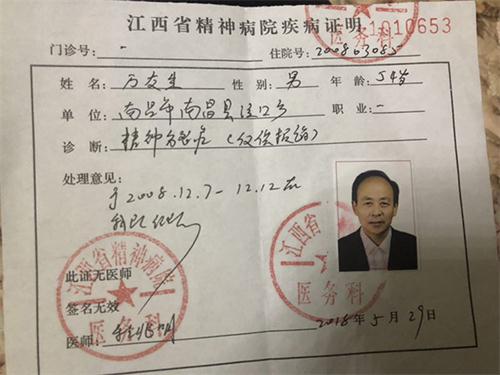 江西省精神病院疾病证明
1010653
门诊号： - 住院号：200803085
姓名：万友生 性别：男 年龄：54岁
单位：南昌市南昌县泾口乡 职业：-
诊断：精神分裂症（仅供报销）
处理意见：
于2008.12.7-12.12在
我院住院
此证无医师
签名无效
医师：
2018年5月29日
江西省精神病院
医务科
江西省
医务科
医务科